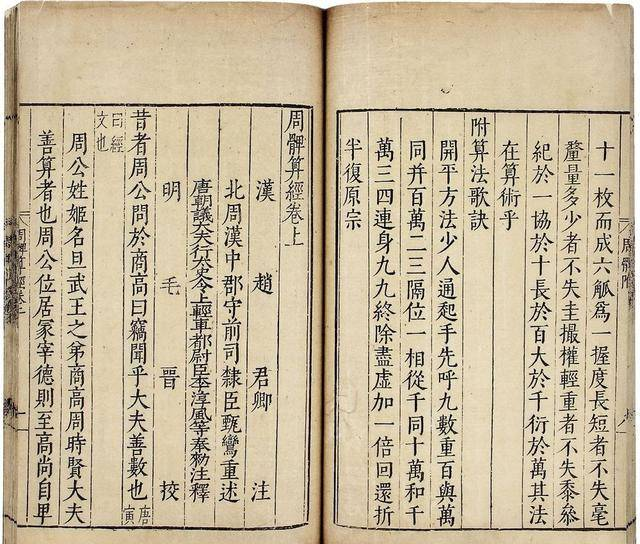 十一枚而成六觚爲一握度長短者不失毫
釐量多少者不失圭撮權輕重者不失黍絫
紀於一協於十長於百大於千衍於萬其法
在算術乎
附算法歌訣
開平方法少人通起手先呼九數重百與萬
同并百萬二三隔位一相從千同十萬和千
萬三四連身九九終除盡虚加一倍回還折
半復原宗
周髀算經卷上
漢趙君卿注
北周漢中郡守前司隸臣甄鸞重述
唐朝議大夫行太史令上輕車都尉臣李淳風等奉勑注釋
明毛晉挍
昔者周公問於商高曰竊聞乎大夫善數也唐寅
曰經文也
周公姓姬名旦武王之弟商高周時賢大夫
善算者也周公位居冢宰德則至高尚自卑